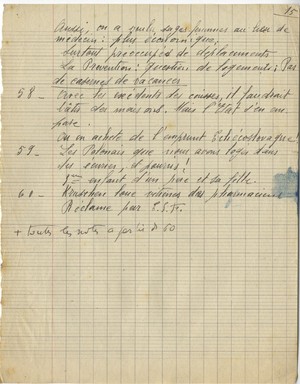 85
Aussi, on a qu'il, sages femmes au lieu de
médecin : plus économique,
surtout préoccupés de déplacements
La Prévention : question de logements ; Pas
de casernes de vacances
58 - Avec les excédents des caisses, il faudrait
bâtir des maisons. Mais l'Etat s'en em-
pare.
On en achète de l'emprunt tchécoslovaque
59 - Les Polonais que nous avons logés dans
des
enfant d'un père et sa fille.
61 - loue pharmacien
Réclame par T.S.F.
+ toutes les notes à partir de 50